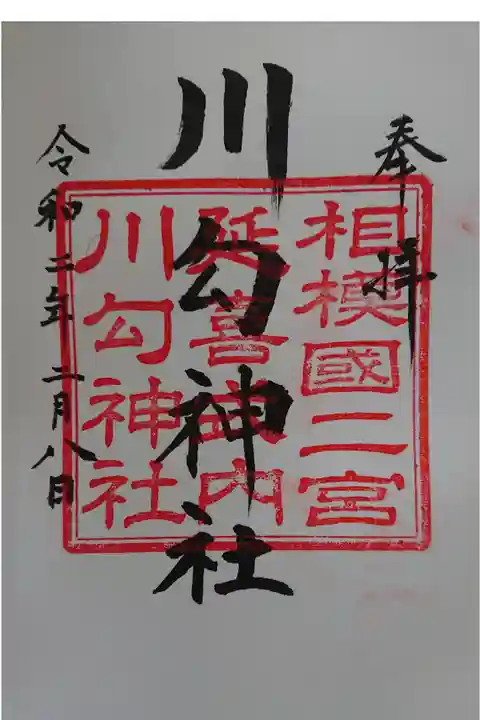 奉拝
相模國二宮
川勾神社
延喜式内
川勾神社
令和二年 二月八日